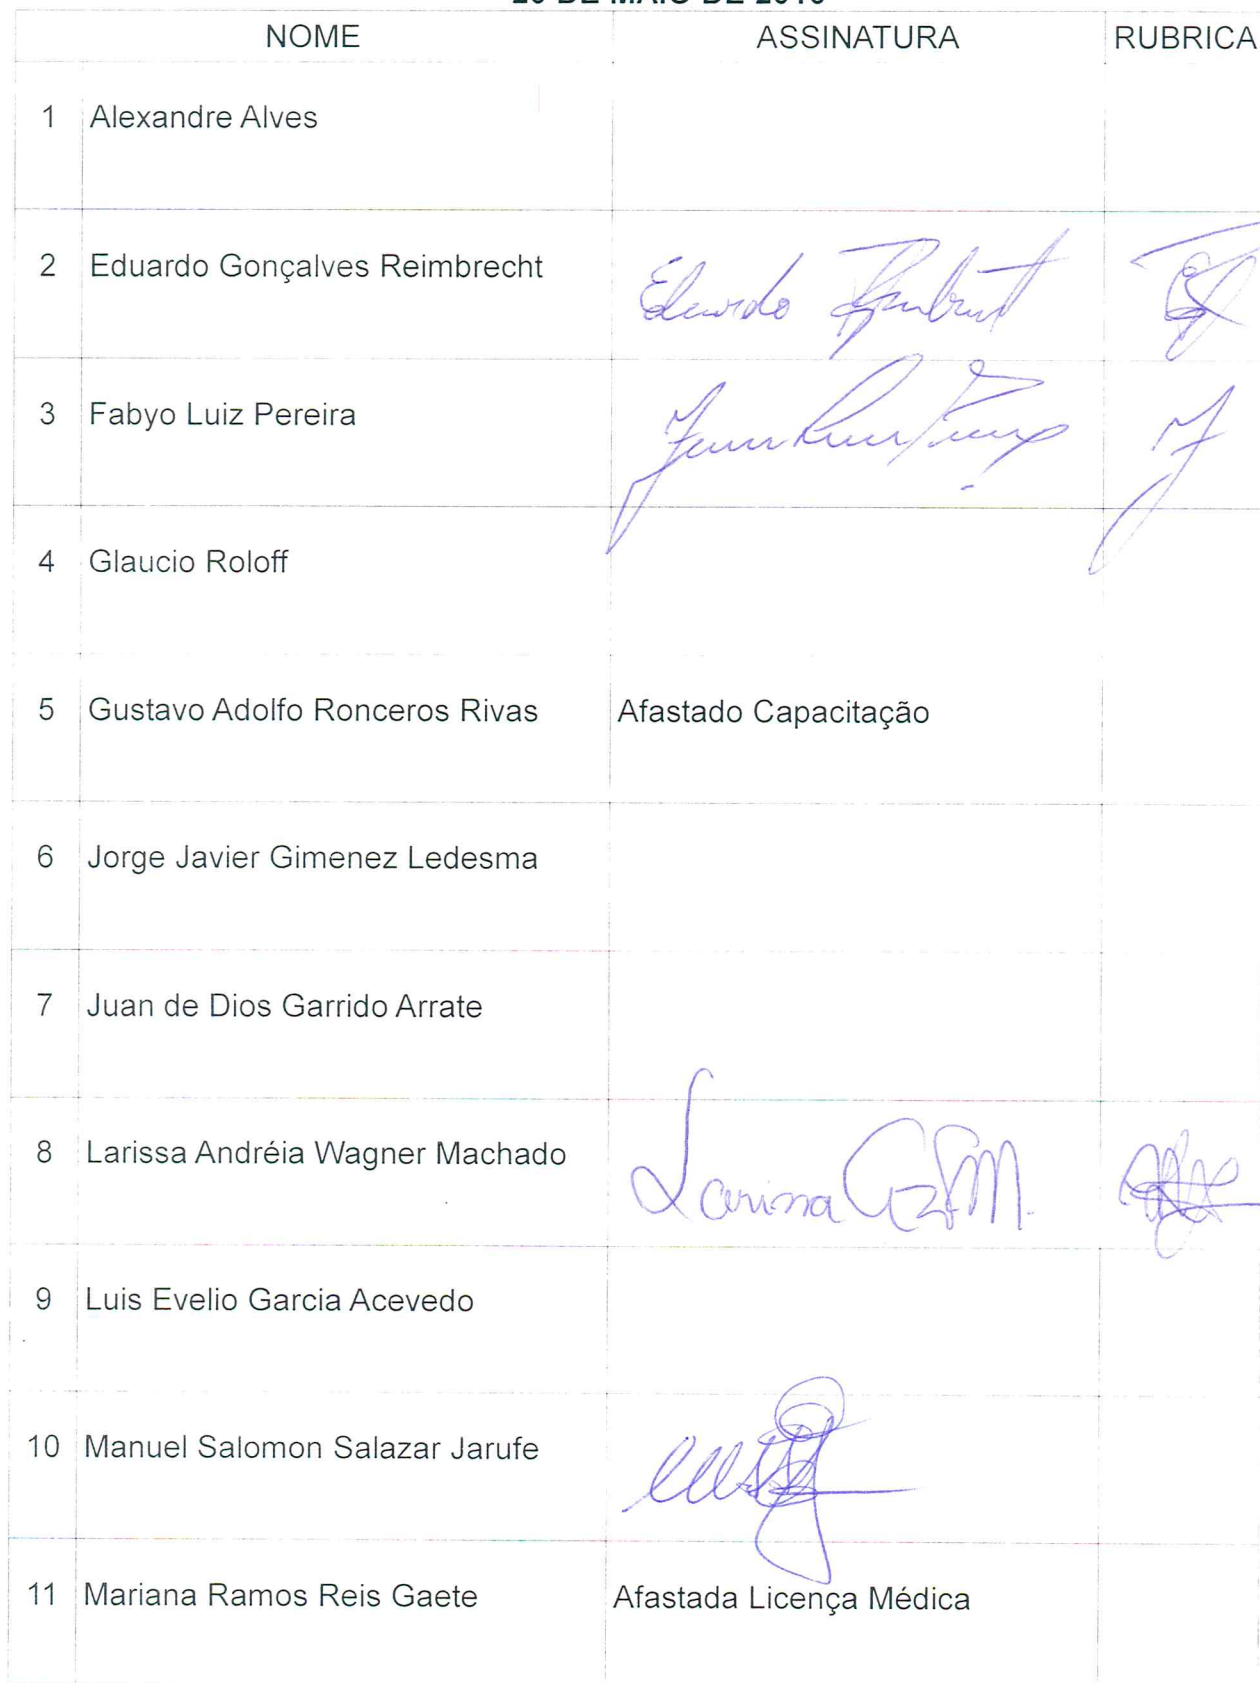 NOME ASSINATURA RUBRICA
1 Alexandre Alves
2 Eduardo Gonçalves Reimbrecht Eduardo
3 Fabyo Luiz Pereira
4 Glaucio Roloff
5 Gustavo Adolfo Ronceros Rivas Afastado Capacitação
6 Jorge Javier Gimenez Ledesma
7 Juan de Dios Garrido Arrate
8 Larissa Andréia Wagner Machado Larissa
9 Luis Evelio Garcia Acevedo
10 Manuel Salomon Salazar Jarufe
11 Mariana Ramos Reis Gaete Afastada Licença Médica